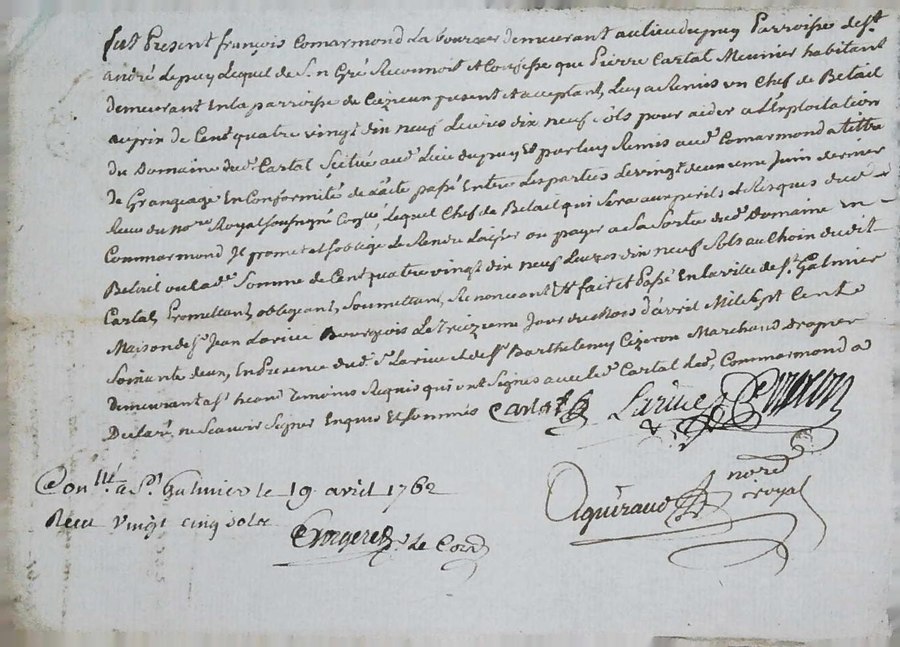 fut Present françois Comarmond Laboureur demeurant au lieu du puy Parroisse de st
andré Le puy Lequel de Son Gré Reconnoit et Confesse que Pierre Cartal Meunier habitant
demeurant En la parroisse de Cuzieu present et acceptant, Luy a Remis un Chef de Betail
au prix de Cent quatre vingt dix neuf Livres dix neuf Sols pour aider a L'Exploitation
du Domaine dud. Cartal Scitué aud. Lieu du puy Et par luy Remis aud. Comarmond a titre
de Grangeage En Conformité de L'acte passé Entre Les parties Le vingt deuxieme Juin dernier
Reçu du nore Royal Soussigné Lequel Chef de Betail qui Sera aux perils et Risques dud.
Commarmond Il promet et s'oblige de Rendre Laisser ou payer a La Sortie dud. Domaine un
Betail ou Lad. Somme de Cent quatre vingt dix neuf Livres dix neuf Sols au Choix dudit
Cartal, Promettant, obligeant, Soumettant, Renonceant Et fait et Passé En la ville de St. Galmier
Maison de Sr. Jean Larive Bourgeois Le treizieme Jour du Mois d'avril Mil Sept Cent
Soixante deux, En Presence dud. Sr. Larive et de Sr. Barthelemy Cizeron Marchand drapier
demeurant Temoins Requis qui ont Signés avec led. Cartal, Led. Commarmond a
Declaré ne Scavoir Signer Enquis Et Sommés Cartal Larive Cizeron
Con. llé a St. Galmier le 19 avril 1762
Recu vingt cinq sols
nore royal